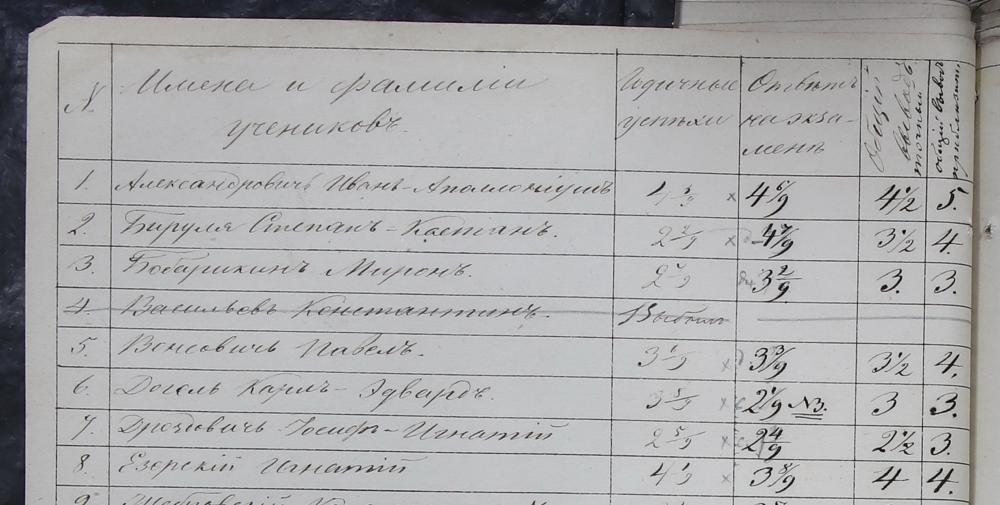 № Имена и фамиліи учениковъ. Годичные успѣхи Отвѣтъ на экзаменѣ Общій выводъ точный общій выводъ приблизит.
1. Александровичъ Иванъ-Аполлонiушъ × 4 6/9 4 1/2 5.
2. Бируля Степанъ-Каетанъ. × 4 7/9 3 1/2 4.
3. Бобарикинъ Миронъ. 2 7/9 3 2/9 3. 3.
4. Васильевъ Константинъ. Выбылъ
5. Вонсовичъ Павелъ. × 3 3/9 3 1/2 4.
6. Догель Карлъ-Эдвардъ. 3 5/9 × 2 1/9 №3. 3 3.
7. Дроздовичъ Іосифъ-Игнатій 2 5/9 × 2 4/9 2 1/2 3.
8. Езерскій Игнатій 4 1/9 × 3 8/9 4 4.